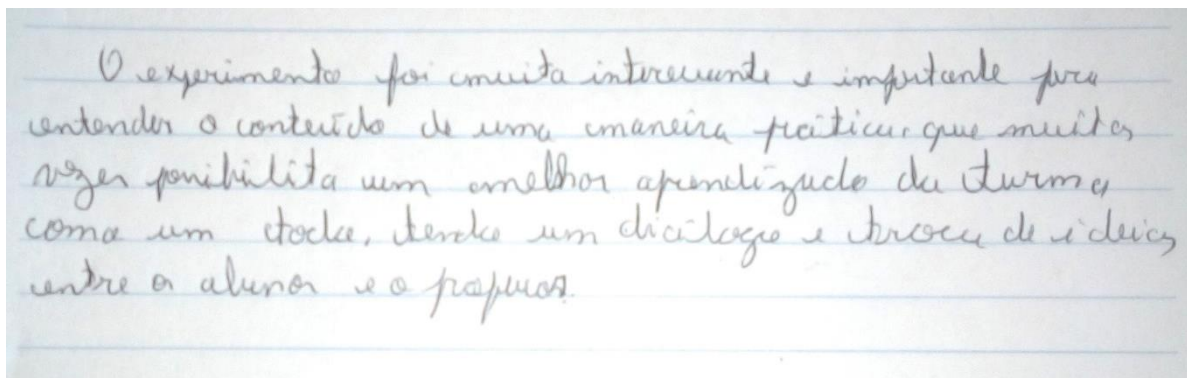 O experimento foi muito interessante e importante para
entender o conteúdo de uma maneira prática, que muitas
vezes possibilita um melhor aprendizado da turma
como um todo, tendo um diálogo e troca de ideias
entre os alunos e o professor.